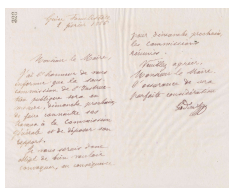 Monsieur le Maire
J'ai l'honneur de vous
informer que la sous-
commission de l'Instruc-
tion publique sera en
mesure, demain prochain,
de faire connaître son
travail à la Commission
et de déposer son
rapport.
Je vous serais donc
obligé de bien vouloir
convoquer, en conséquence
pour demain prochain
les commissions
réunies.
Veuillez agréer,
Monsieur le Maire
l'assurance de ma
parfaite considération